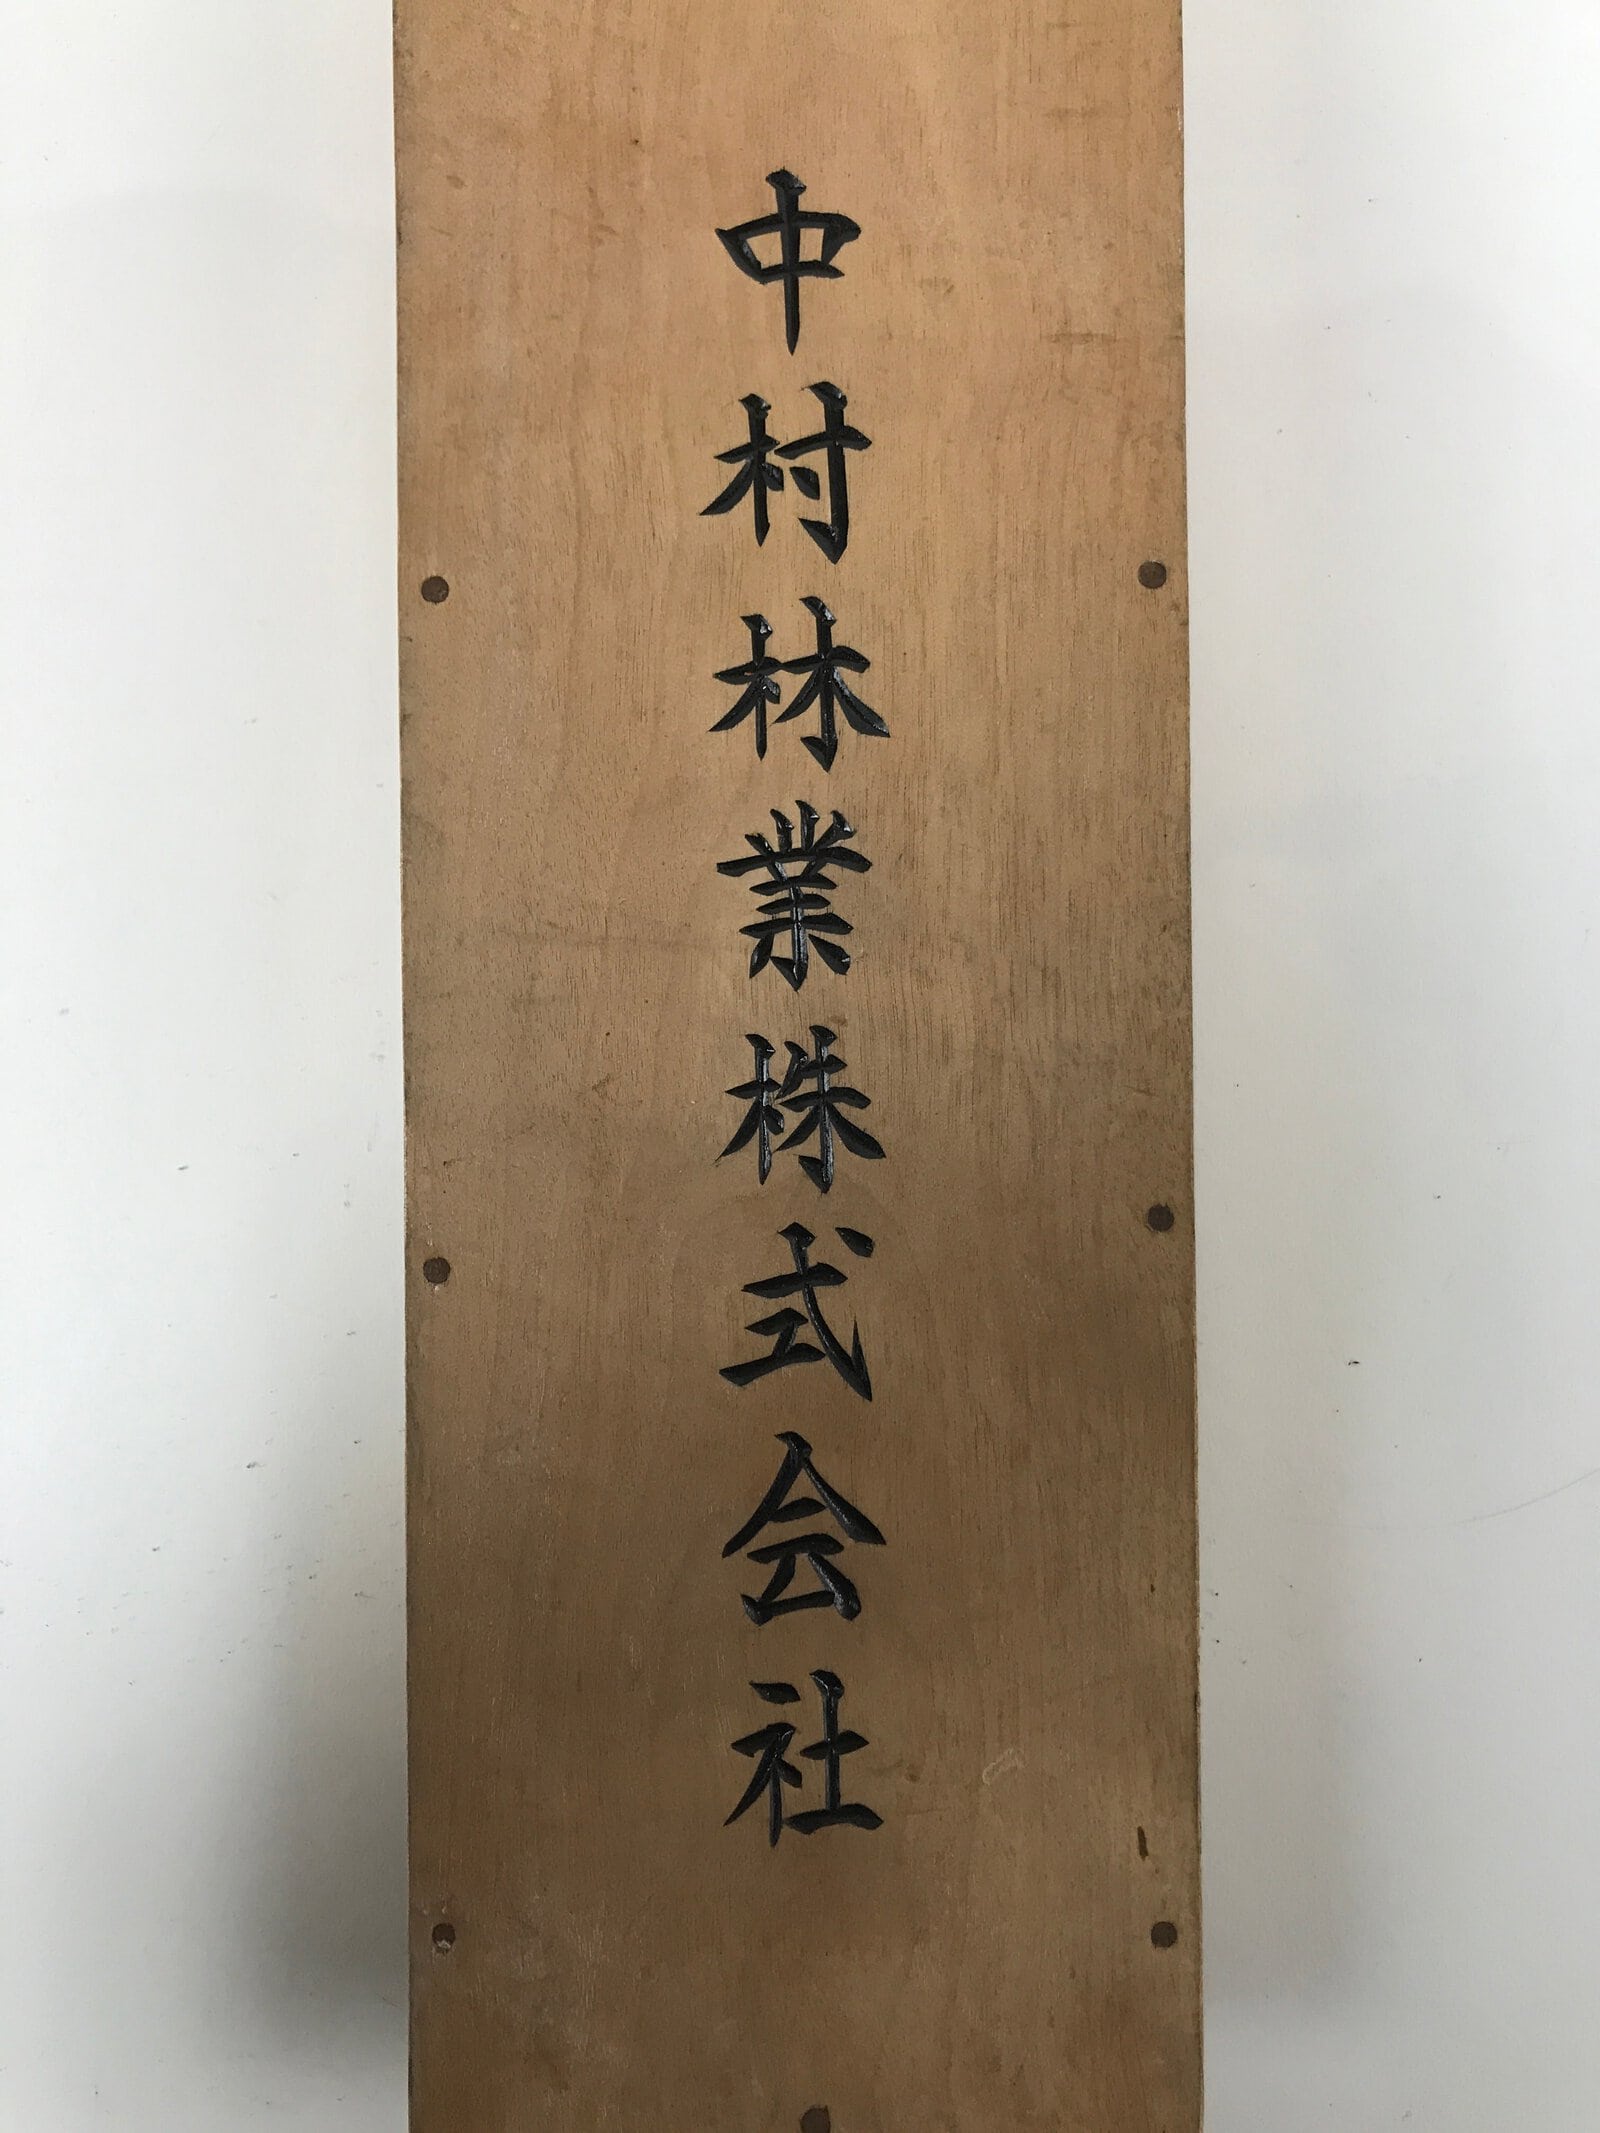 中村林業株式会社